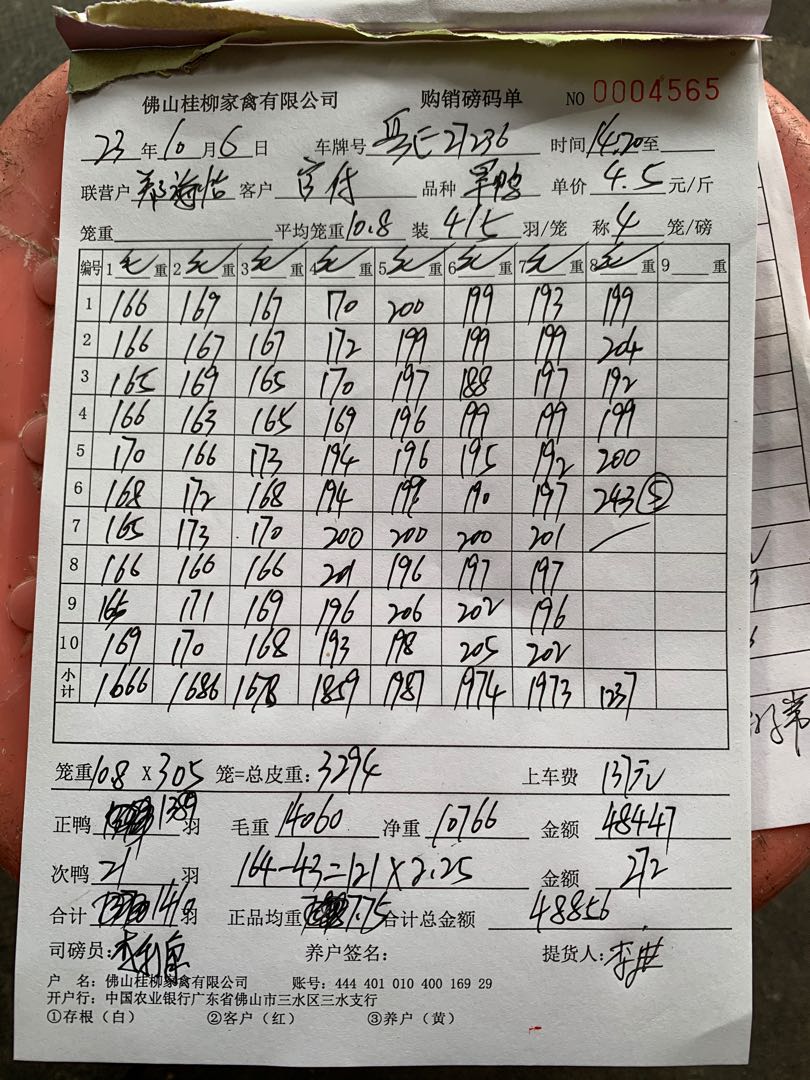 佛山桂柳家禽有限公司 购销磅码单 NO 0004565
23年10月6日 车牌号 27236 时间14.20至
联营户 客户 品种 单价 4.5 元/斤
笼重 平均笼重10.8 装 4/5 羽/笼 称 4 笼/磅
编号 1毛重 2毛重 3毛重 4毛重 5毛重 6毛重 7毛重 8毛重 9 重
1 166 169 167 170 200 199 193 199
2 166 167 167 172 199 199 199 204
3 165 169 165 170 197 188 197 192
4 166 163 165 169 196 199 199 199
5 170 166 173 194 196 195 192 200
6 168 172 168 194 199 190 197 243⑤
7 165 173 170 200 200 200 201
8 166 166 166 201 196 197 197
9 165 171 169 196 206 202 196
10 169 170 168 193 198 205 202
小计 1666 1686 1678 1859 1987 1974 1973 1237
笼重10.8 X 305 笼=总皮重:3294 上车费 137元
正鸭 1389 羽 毛重 14060 净重 10766 金额 48447
次鸭 21 羽 164-43=121 X 2.25 金额 272
合计 1410 羽 正品均重 7.75 合计总金额 48856
司磅员: 养户签名: 提货人:
户 名:佛山桂柳家禽有限公司 账号:444 401 010 400 169 29
开户行:中国农业银行广东省佛山市三水区三水支行
①存根(白) ②客户(红) ③养户(黄)